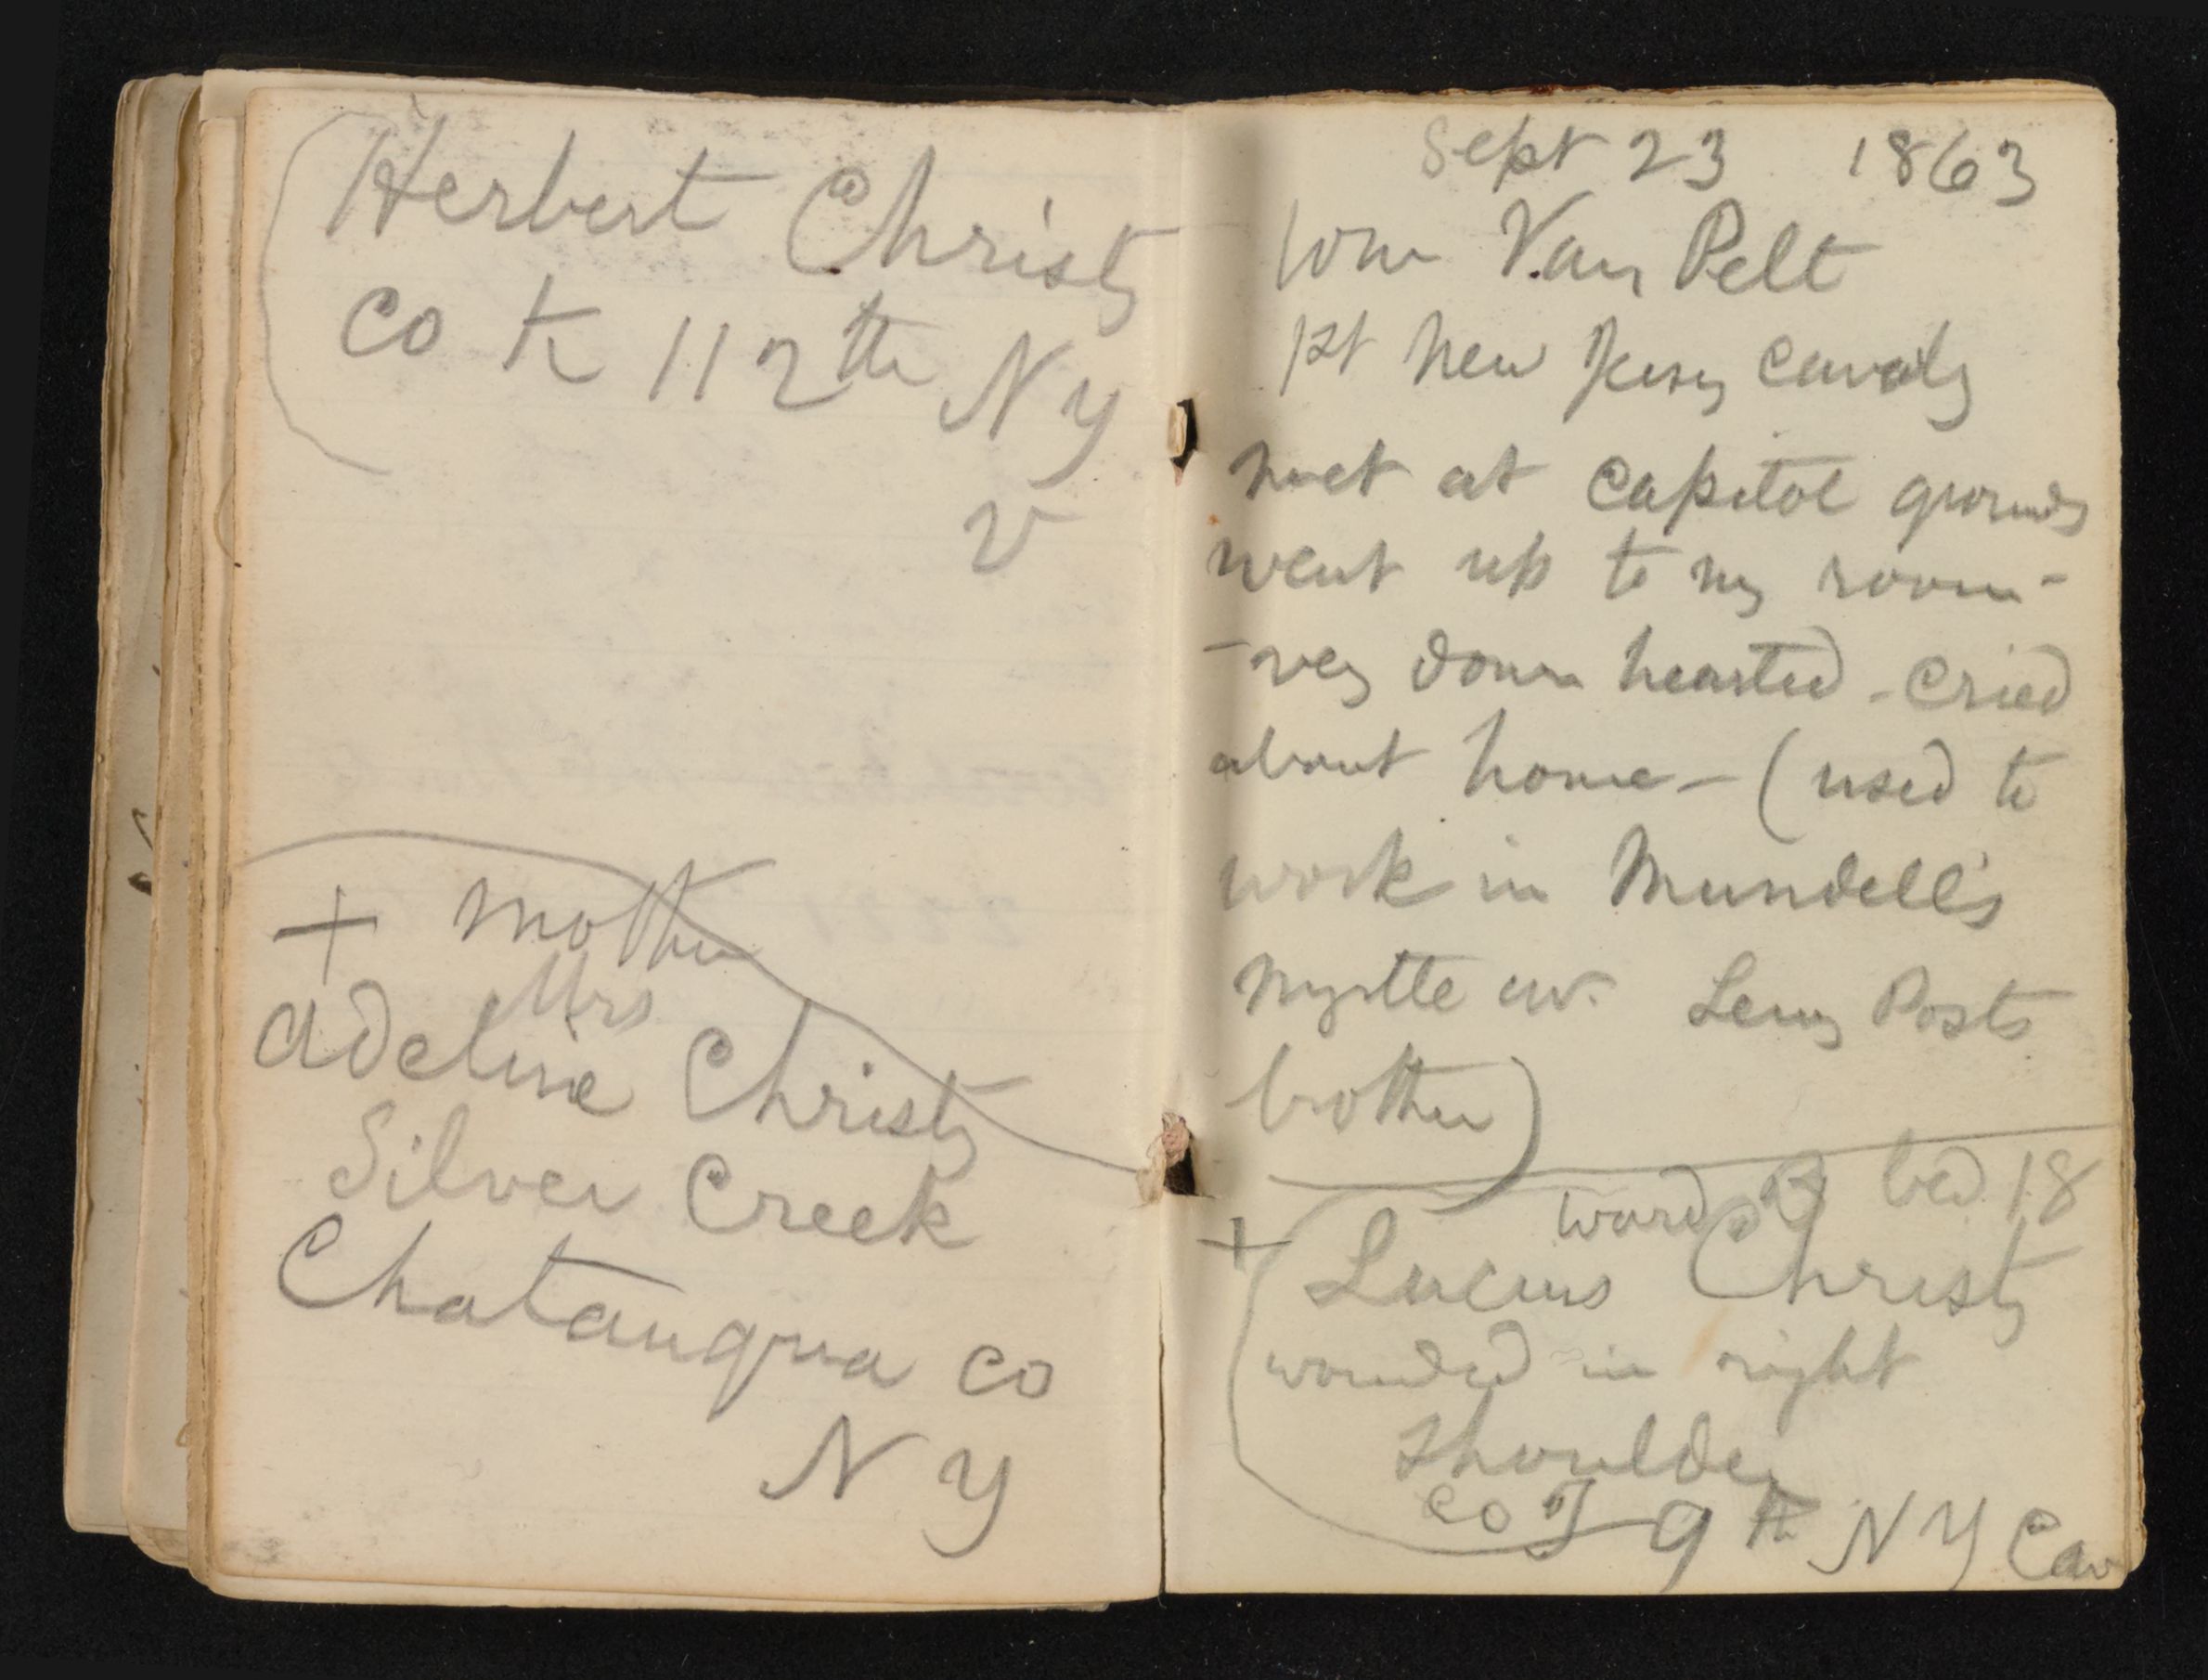 Herbert Christy
co K 112th NY
V
+ mother
Mrs
Adeline Christy
Silver Creek
Chatauqua co
N Y
Sept 23 1863
Wm Van Pelt
1st New Jersey Cavalry
met at capitol grounds
went up to my room -
- very down hearted - cried
about home - (used to
work in Mundell's
Myrtle av. Leny Posts
brother)
ward B bed 18
+ Lucius Christy
wounded in right
shoulder
co I 9th NY Cav